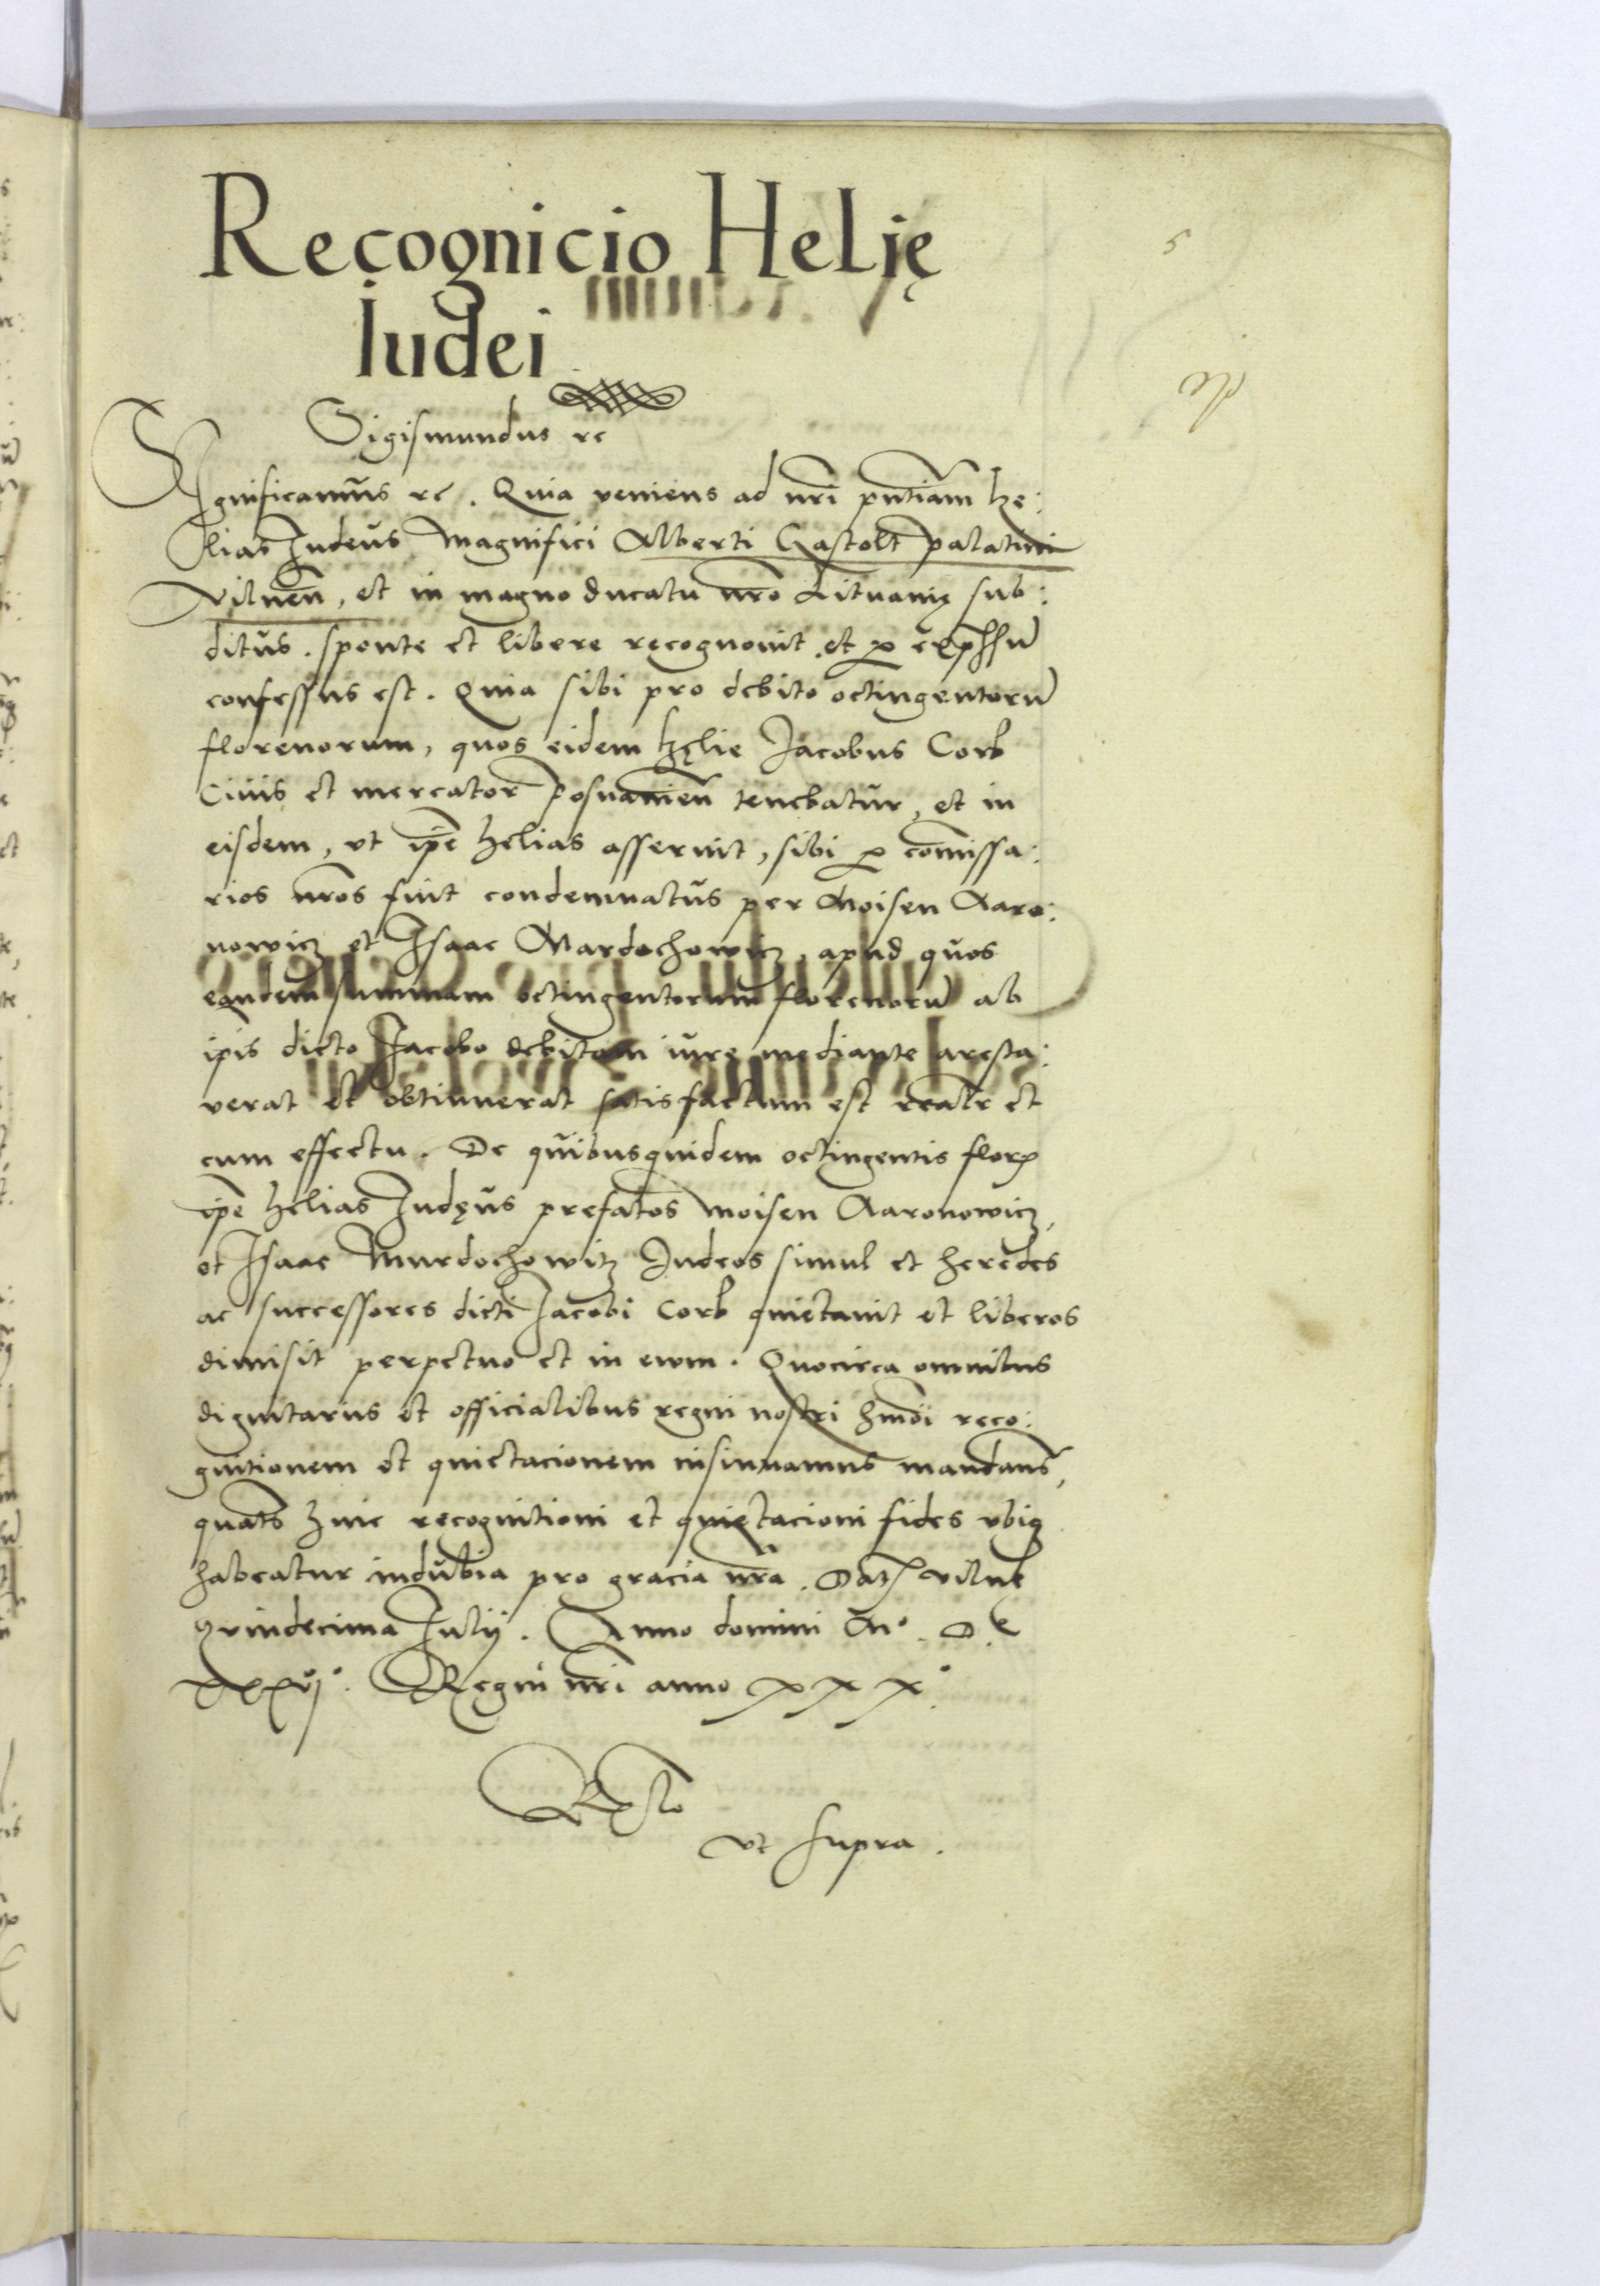 Recognicio Helię
Iudei
Sigismundus rc
Significamus rc. Quia veniens ad nri pntiam he:
lias Iudeus Magnifici Alberti Gastolt palatini
vilnen, et in magno ducatu nro Lituanię sub:
ditus. sponte et libere recognouit et p expssu
confessus est. Quia sibi pro debito octingentoru
florenorum, quos eidem hęlie Jacobus Corb
Ciuis et mercator Posnanien tenebatur, et in
eisdem, vt ipe helias asseruit, sibi p comissa:
rios nros fuit condemnatus per Moisen Aaro:
nowicz et Isaac Mardochowicz, apud quos
eandem summam octingentorum florenoru ab
ipis dicto Jacobo debitam iure mediante aresta:
verat et obtinuerat satisfactum est realr et
cum effectu. De quibusquidem octingentis flor
ipe helias Iudęus prefatos Moisen Aaronowicz,
et Isaac Murdochowitz Iudeos simul et heredes
ac successores dicti Jacobi Corb quietauit et liberos
dimisit perpetuo et in ewm. Quocirca omnibus
dignitariis et officialibus regni nostri hmoi reco:
gnitionem et quietacionem insinuamus mandans,
quats huic recognitioni et quietacioni fides vbiq
habeatur indubia pro gracia nra. Dat vilne
quindecima Julij. Anno domini Mo. D.
xxxvjo. Regni nri anno xxxo.
Rlo
vt supra.